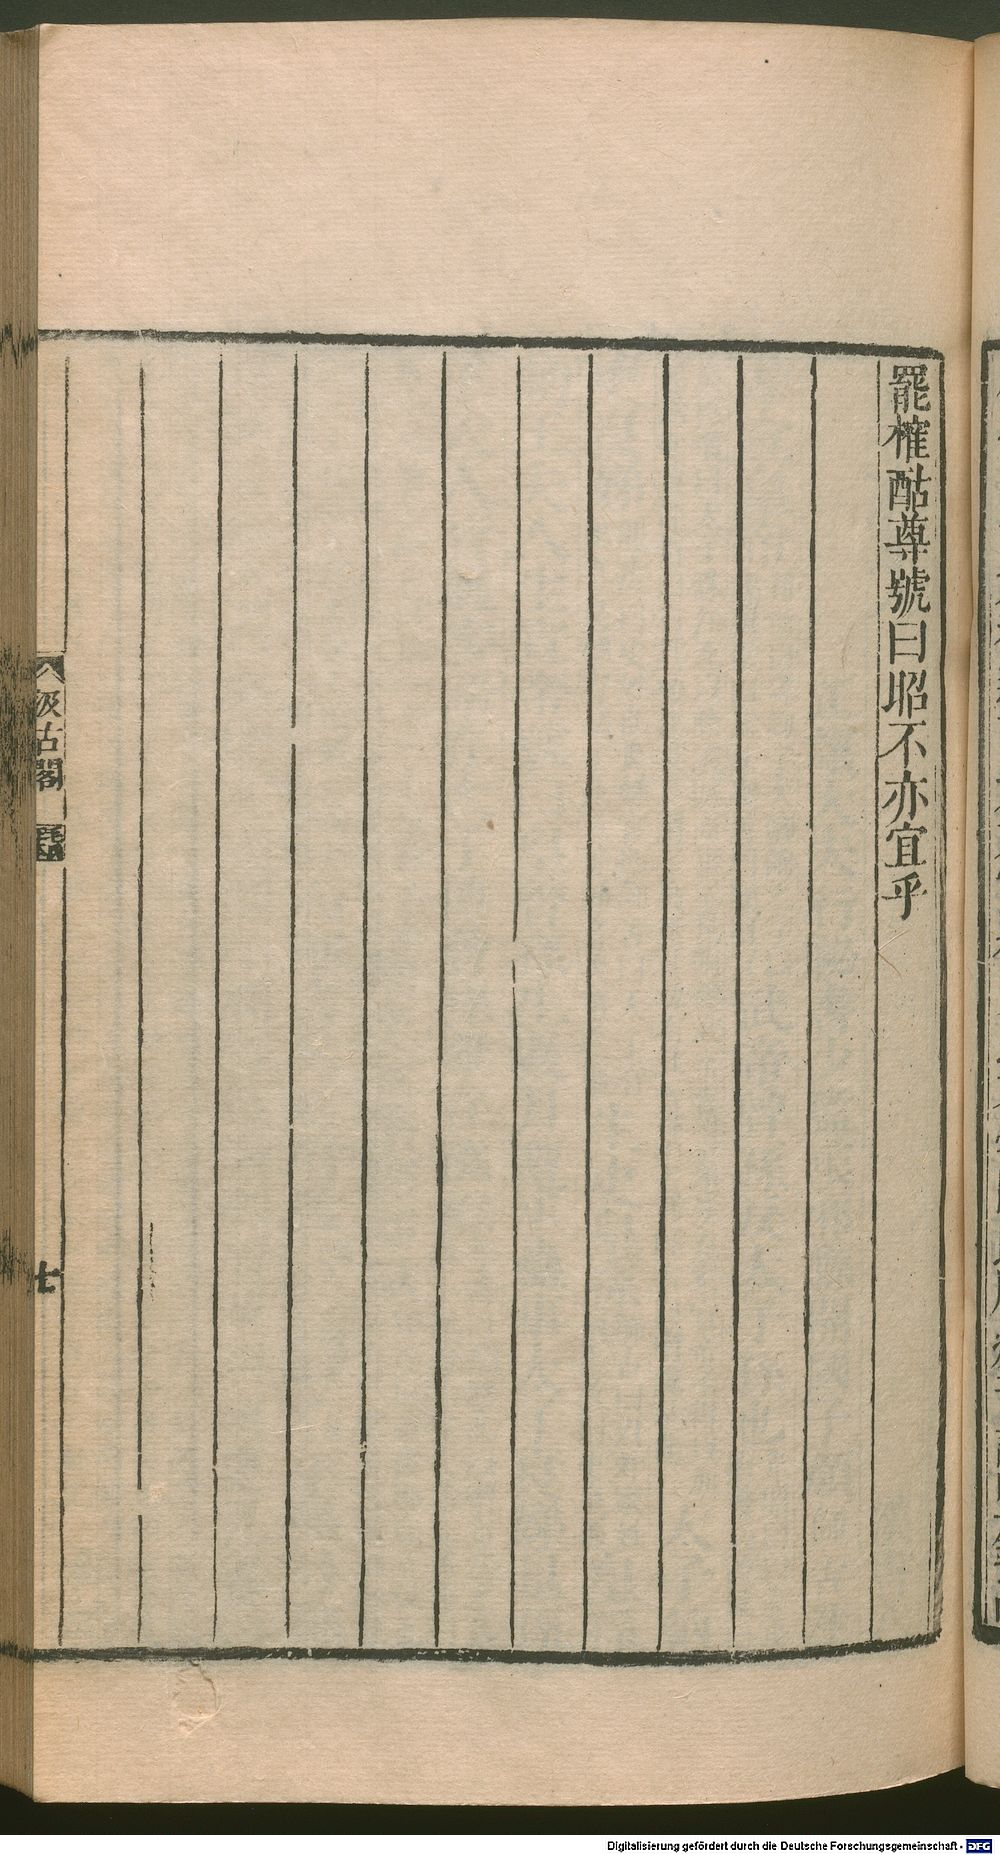 罷榷酤尊號曰昭不亦宜乎
汲古閣
毛氏
七
Digitalisierung gefördert durch die Deutsche Forschungsgemeinschaft - DFG